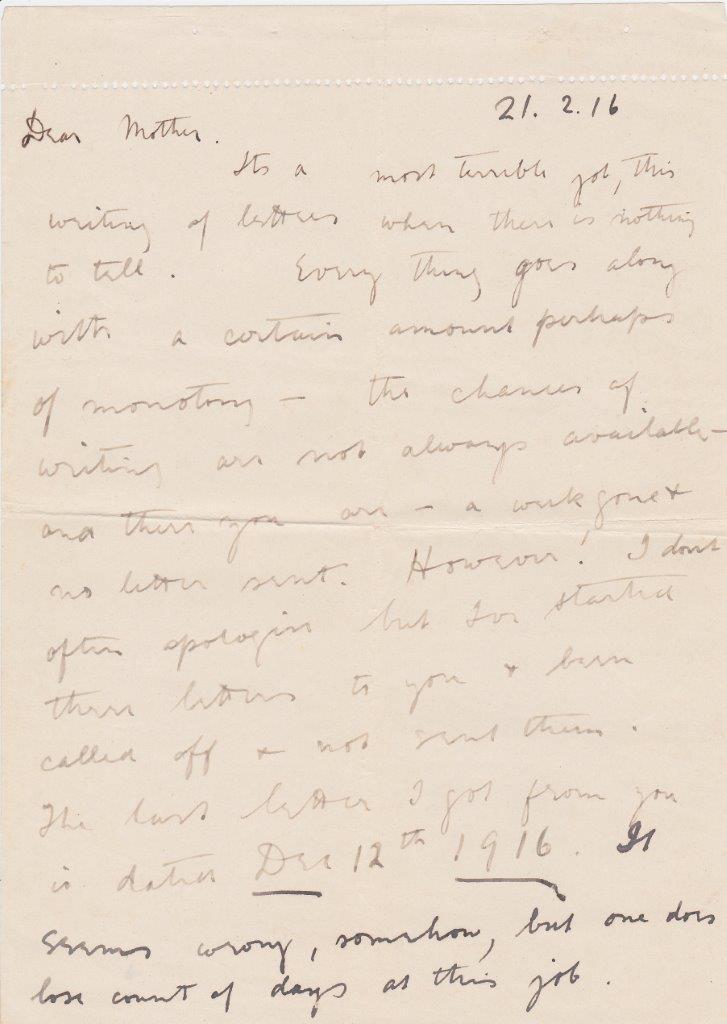 21. 2. 16
Dear Mother.
Its a most terrible job, this
writing of letters when there is nothing
to tell. Every thing goes along
with a certain amount perhaps
of monotony – the chances of
writing are not always available –
and there you are – a week gone &
no letter sent. However! I dont
often apologise but Ive started
three letters to you & been
called off & not sent them.
The last letter I got from you
is dated Dec 12th 1916. It
seems wrong, somehow, but one does
lose count of days at this job.